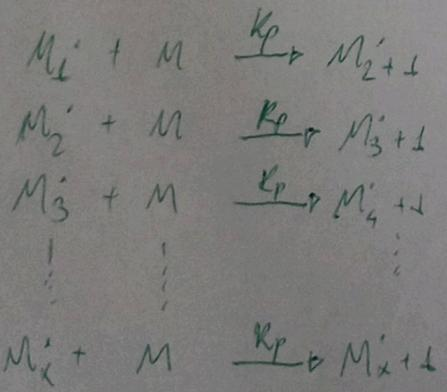 M₁˙ + M —Kp→ M₂˙+1
M₂˙ + M —Kp→ M₃˙+1
M₃˙ + M —Kp→ M₄˙+1
Mₓ˙ + M —Kp→ Mₓ˙+1